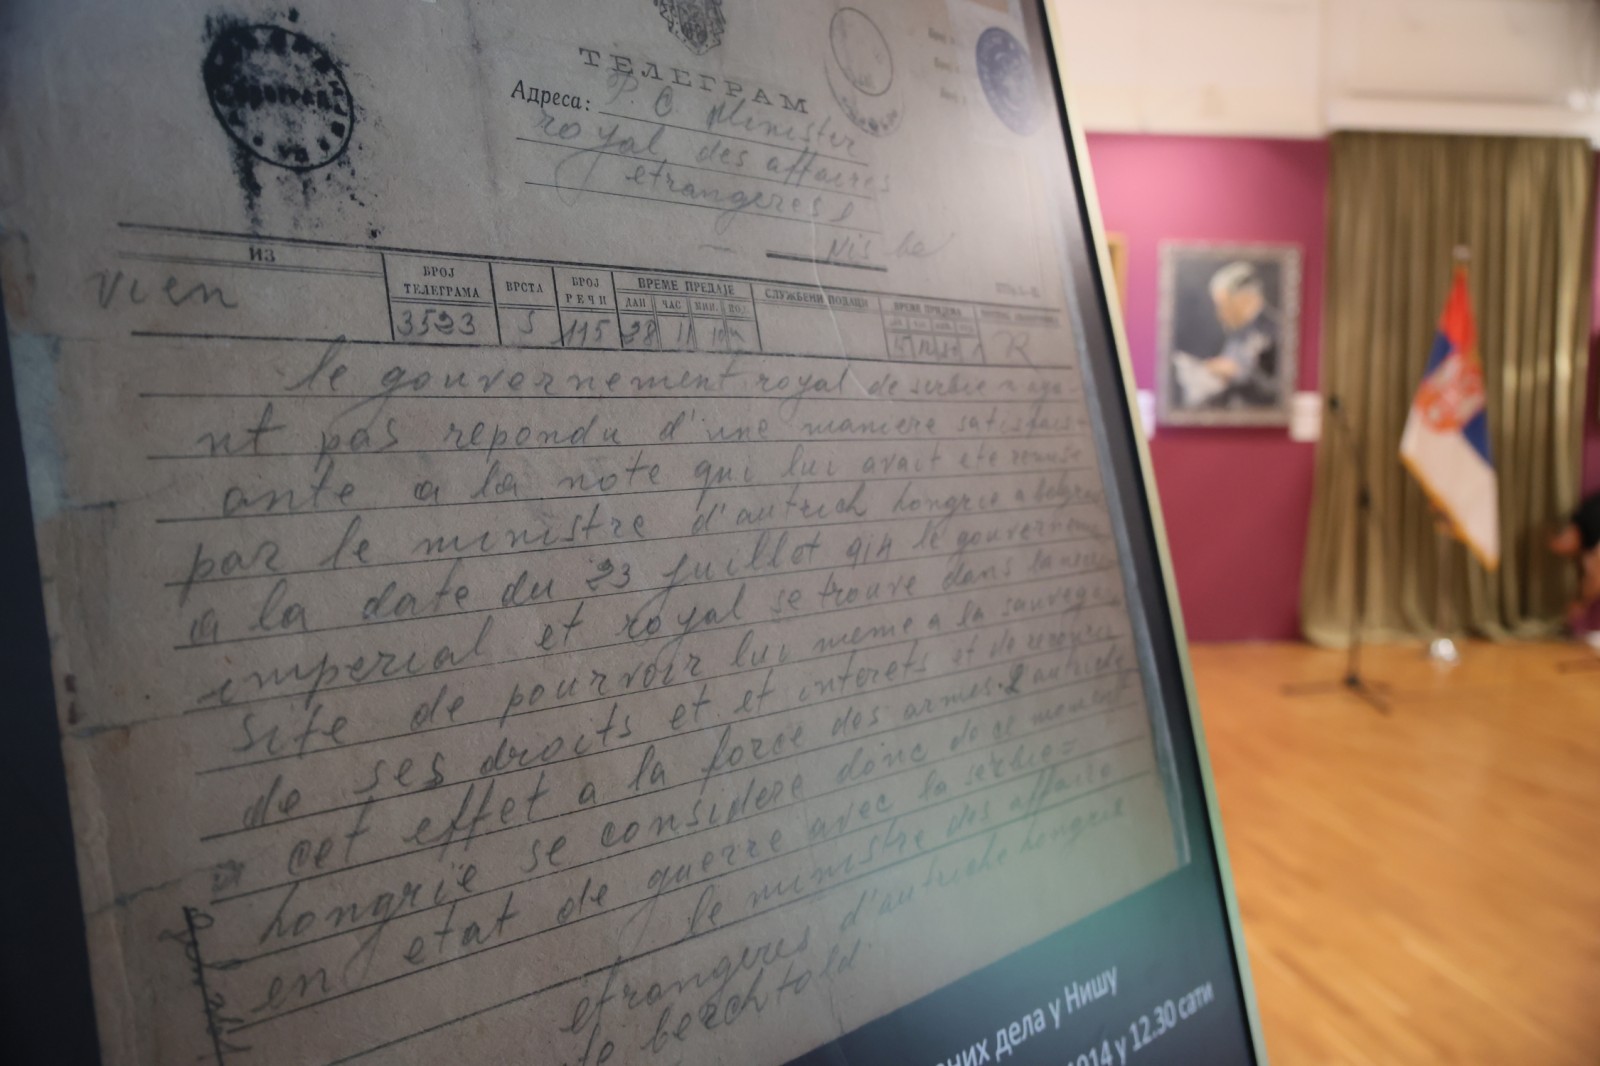 ТЕЛЕГРАМ
Адреса: P. C Minister
royal des affaires
etrangeres
Nis
ИЗ
БРОЈ ТЕЛЕГРАМА
ВРСТА
БРОЈ РЕЧИ
ВРЕМЕ ПРЕДАЈЕ
СЛУЖБЕНИ ПОДАЦИ
ВРЕМЕ ПРИЈЕМА
ДАН ЧАС МИН.
Vien 3523 5 115 28 11 R
le gouvernement royal de serbie n aya
nt pas repondu d'une maniere satisfais
ante a la note qui lui avait ete remise
par le ministre d'autrich hongrie a belgrad
a la date du 23 juillot 914 le gouverneme
imperial et royal se trouve dans la neces
site de pourvoir lui meme a la sauvega
de ses droits et et interets et de recourir
a cet effet a la force des armes. L autriche
hongrie se considere donc de ce moment
en etat de guerre avec la serbie =
le ministre des affaire
etrangeres d'autriche hongrie
berchtold
них дела у Нишу
1914 у 12.30 сати